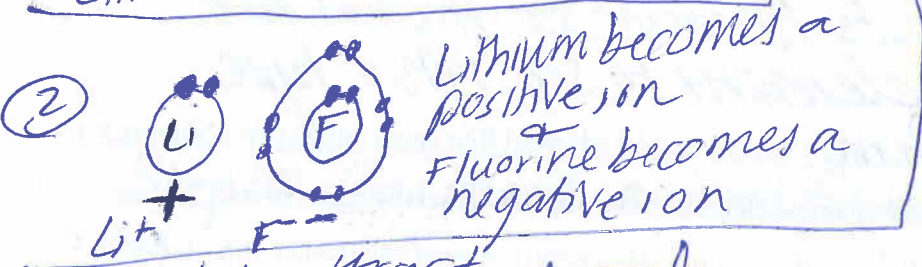 ②
Li
F
+
Li+
F-
Lithium becomes a
positive ion
&
Fluorine becomes a
negative ion